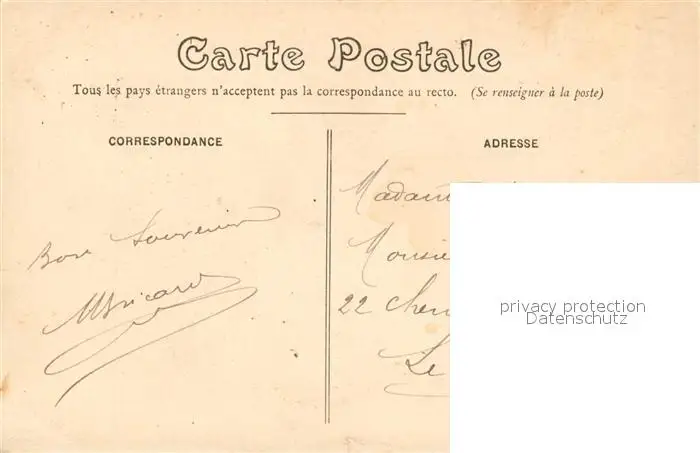 Carte Postale
Tous les pays étrangers n'acceptent pas la correspondance au recto. (Se renseigner à la poste)
CORRESPONDANCE
Bon Souvenir
ADRESSE
Madam
Monsie
22 chem
Le
privacy protection
Datenschutz